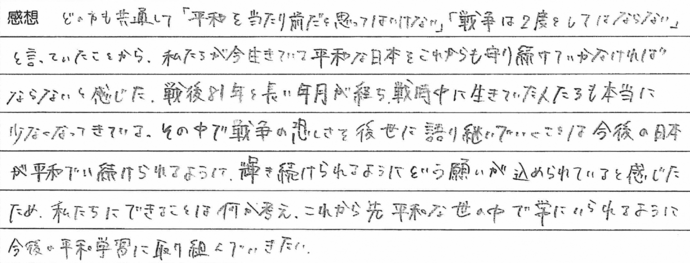 感想 どの方も共通して「平和を当たり前だと思ってはいけない」「戦争は2度としてはならない」
と言っていたことから、私たちが今生きている平和な日本をこれからも守り続けていかなければ
ならないと感じた。戦後81年と長い年月が経ち、戦時中に生きていた人たちも本当に
少なくなってきている。その中で戦争の恐しさを後世に語り継いでいくことは今後の日本
が平和でい続けられるように、輝き続けられるようにという願いが込められていると感じた
ため、私たちにできることは何か考え、これから先平和な世の中で常にいられるように
今後の平和学習に取り組んでいきたい。